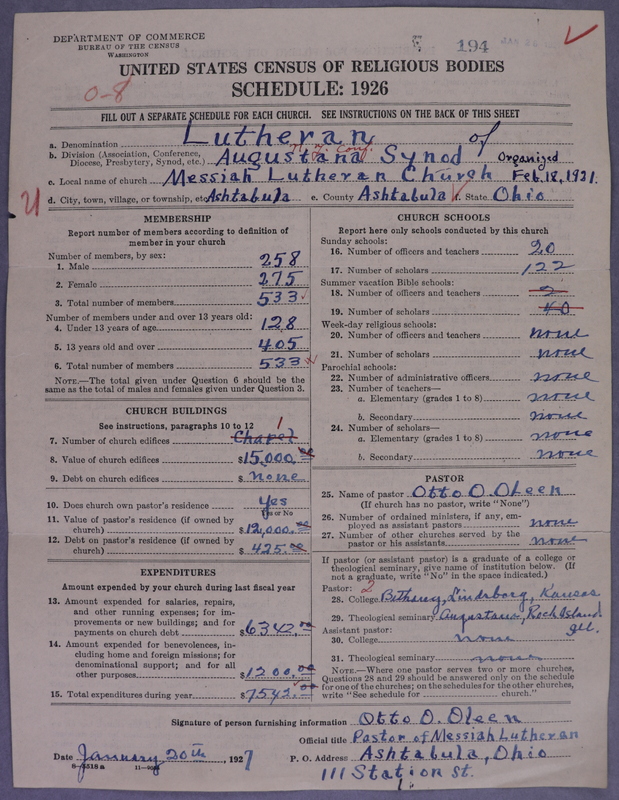 DEPARTMENT OF COMMERCE
BUREAU OF THE CENSUS
WASHINGTON
194
UNITED STATES CENSUS OF RELIGIOUS BODIES
SCHEDULE: 1926
0-8
FILL OUT A SEPARATE SCHEDULE FOR EACH CHURCH. SEE INSTRUCTIONS ON THE BACK OF THIS SHEET
a. Denomination Lutheran of
b. Division (Association, Conference, Diocese, Presbytery, Synod, etc.) Augustana Synod Organized
c. Local name of church Messiah Lutheran Church Feb. 18, 1921.
d. City, town, village, or township, etc Ashtabula e. County Ashtabula f. State Ohio
MEMBERSHIP
Report number of members according to definition of
member in your church
Number of members, by sex:
1. Male 258
2. Female 275
3. Total number of members 533
Number of members under and over 13 years old:
4. Under 13 years of age 128
5. 13 years old and over 405
6. Total number of members 533
NOTE.—The total given under Question 6 should be the
same as the total of males and females given under Question 3.
CHURCH BUILDINGS
See instructions, paragraphs 10 to 12
7. Number of church edifices Chapel 1
8. Value of church edifices $15,000.00
9. Debt on church edifices $ none
10. Does church own pastor's residence yes
Yes or No
11. Value of pastor's residence (if owned by
church) $12,000.00
12. Debt on pastor's residence (if owned by
church) $ 425.00
EXPENDITURES
Amount expended by your church during last fiscal year
13. Amount expended for salaries, repairs,
and other running expenses; for im-
provements or new buildings; and for
payments on church debt $6342.00
14. Amount expended for benevolences, in-
cluding home and foreign missions; for
denominational support; and for all
other purposes $1200.00
15. Total expenditures during year $7542.00
CHURCH SCHOOLS
Report here only schools conducted by this church
Sunday schools:
16. Number of officers and teachers 20
17. Number of scholars 122
Summer vacation Bible schools:
18. Number of officers and teachers 2
19. Number of scholars 40
Week-day religious schools:
20. Number of officers and teachers none
21. Number of scholars none
Parochial schools:
22. Number of administrative officers none
23. Number of teachers—
a. Elementary (grades 1 to 8) none
b. Secondary none
24. Number of scholars—
a. Elementary (grades 1 to 8) none
b. Secondary none
PASTOR
25. Name of pastor Otto O. Oleen
(If church has no pastor, write "None")
26. Number of ordained ministers, if any, em-
ployed as assistant pastors none
27. Number of other churches served by the
pastor or his assistants none
If pastor (or assistant pastor) is a graduate of a college or
theological seminary, give name of institution below. (If
not a graduate, write "No" in the space indicated.)
Pastor: 2
28. College Bethany, Lindsborg, Kansas
29. Theological seminary Augustana, Rock Island
Ill.
Assistant pastor:
30. College none
31. Theological seminary none
NOTE.—Where one pastor serves two or more churches,
Questions 28 and 29 should be answered only on the schedule
for one of the churches; on the schedules for the other churches,
write "See schedule for church."
Signature of person furnishing information Otto O. Oleen
Official title Pastor of Messiah Lutheran
Date January 20th, 1927 P. O. Address Ashtabula, Ohio
111 Station St.